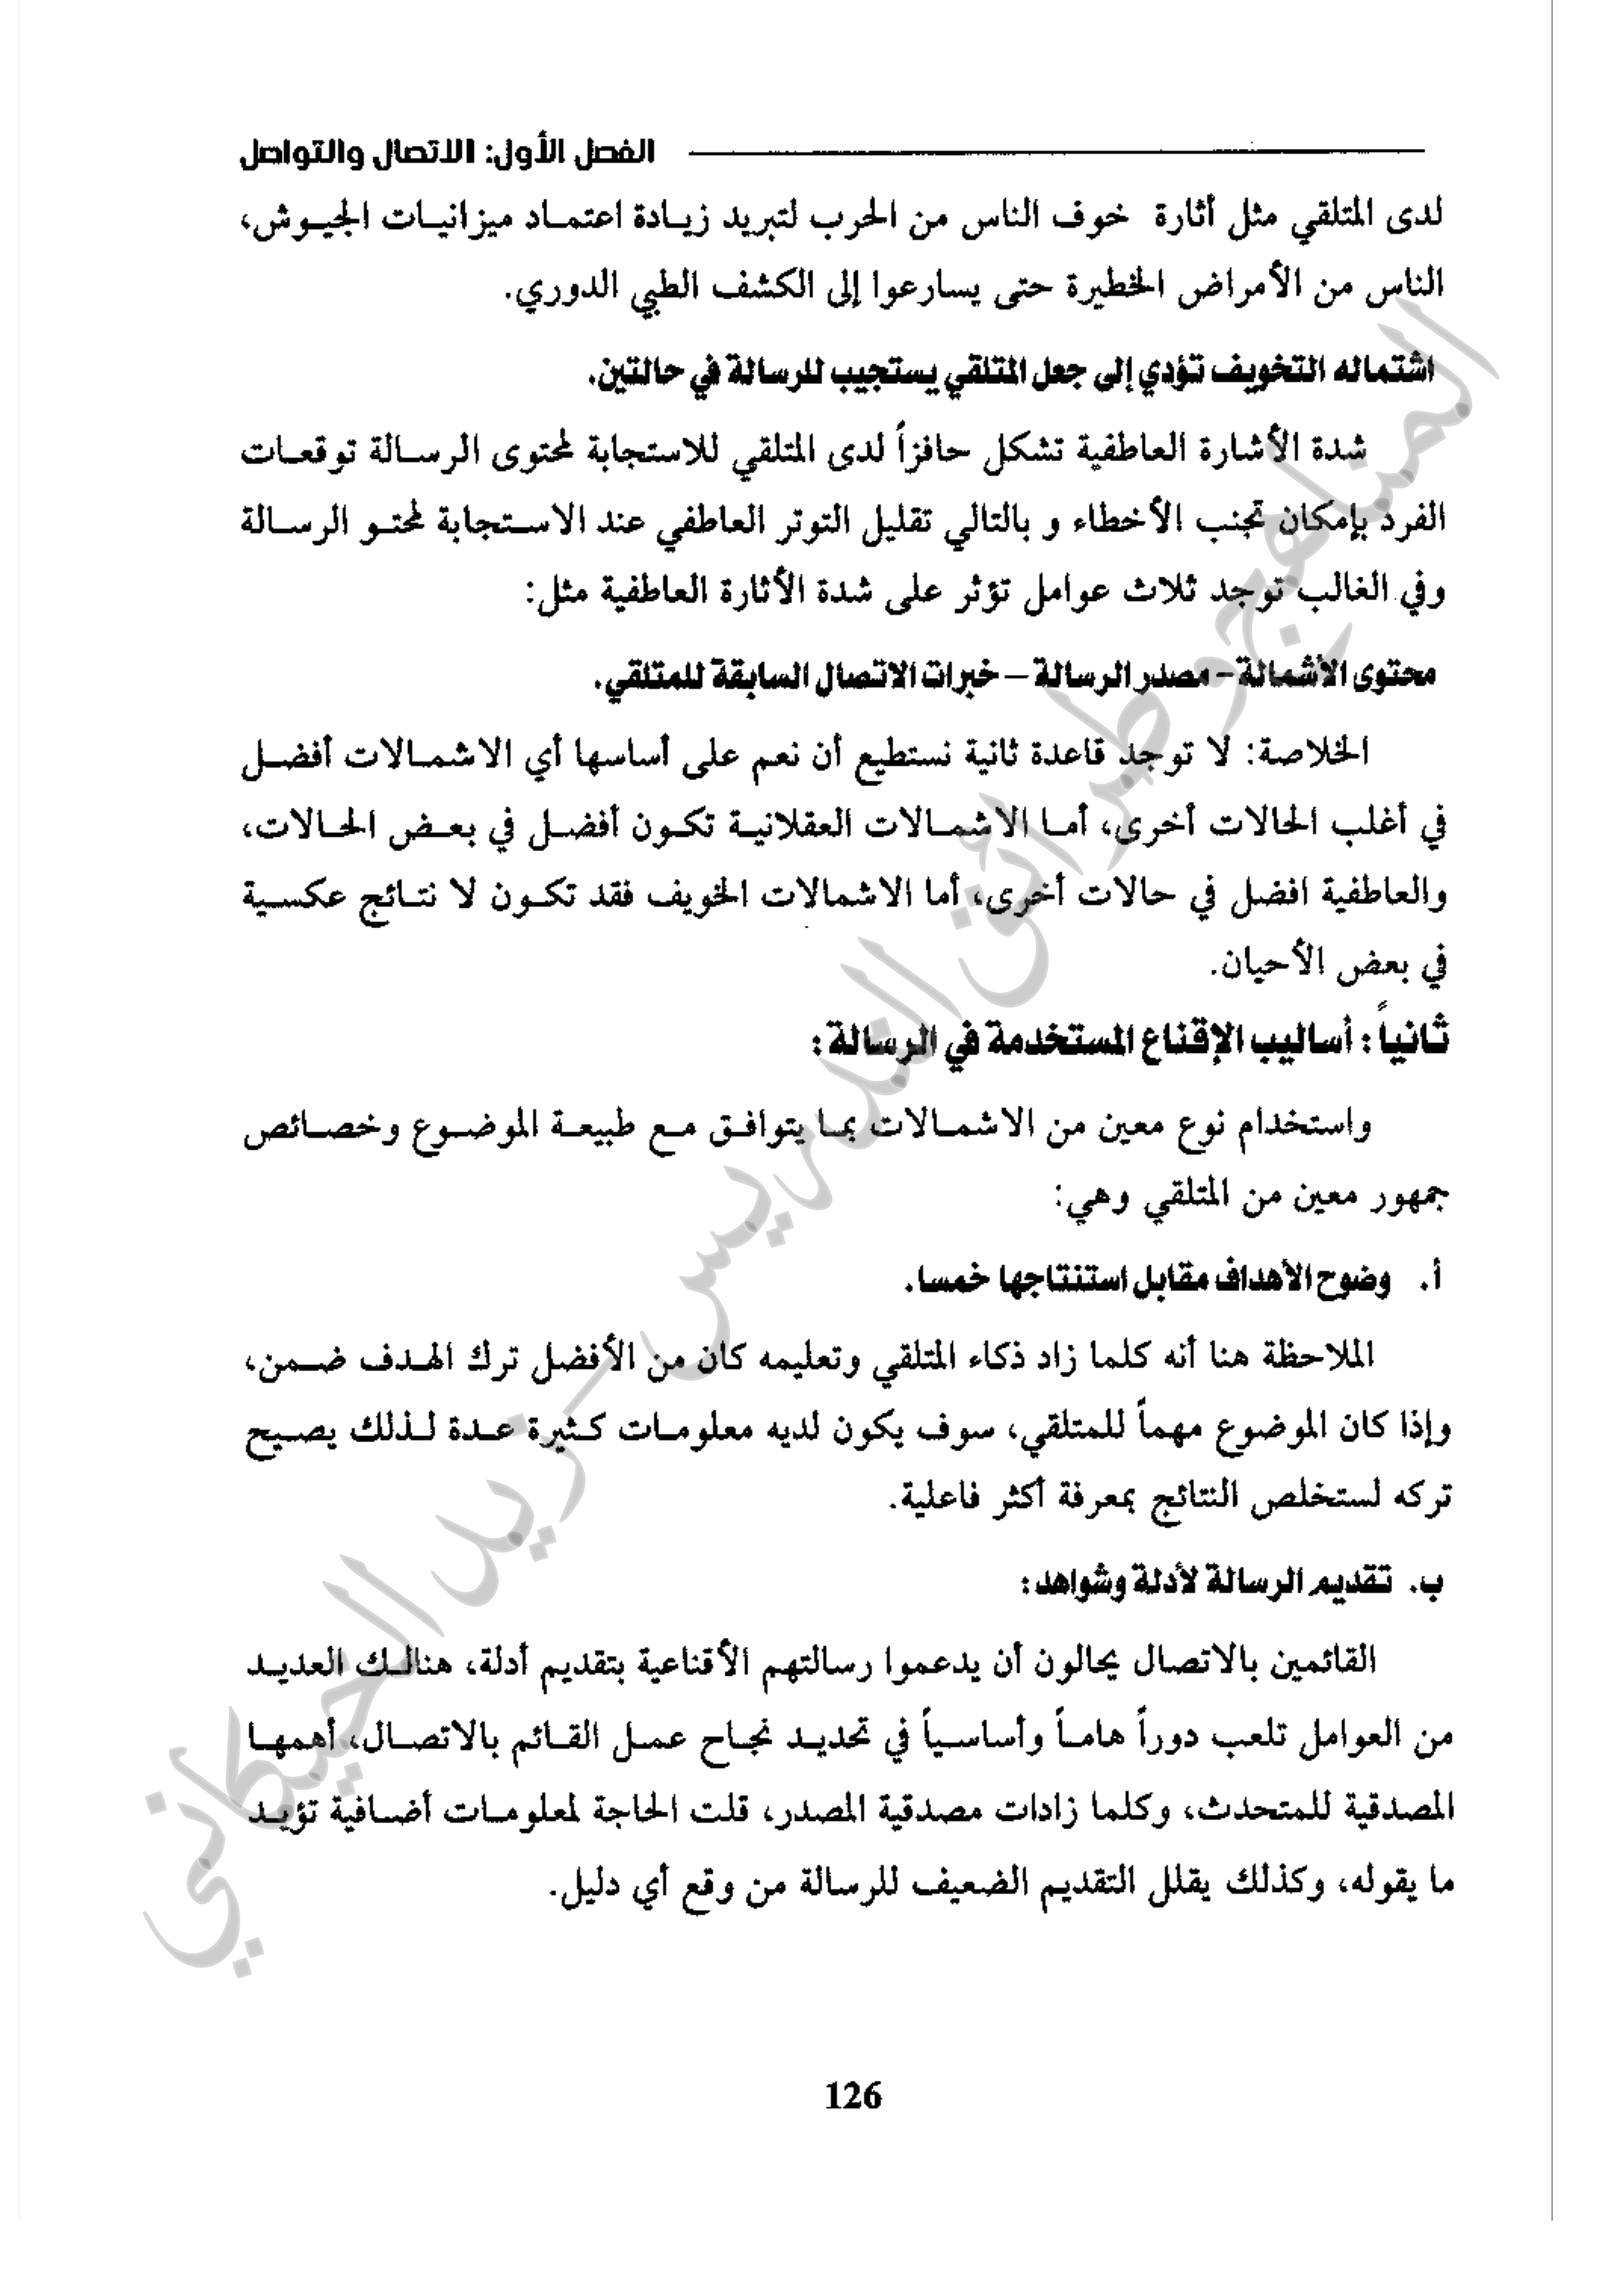 الفصل الأول: الاتصال والتواصل
لدى المتلقي مثل أثارة خوف الناس من الحرب لتبريد زيادة اعتماد ميزانيات الجيوش،
الناس من الأمراض الخطيرة حتى يسارعوا إلى الكشف الطبي الدوري.
اشتماله التخويف تؤدي إلى جعل المتلقي يستجيب للرسالة في حالتين.
شدة الأشارة العاطفية تشكل حافزاً لدى المتلقي للاستجابة لمحتوى الرسالة توقعات
الفرد بإمكان تجنب الأخطاء و بالتالي تقليل التوتر العاطفي عند الاستجابة لمحتو الرسالة
وفي الغالب توجد ثلاث عوامل تؤثر على شدة الأثارة العاطفية مثل:
محتوى الأشمالة – مصدر الرسالة – خبرات الاتصال السابقة للمتلقي.
الخلاصة: لا توجد قاعدة ثانية نستطيع أن نعم على أساسها أي الاشمالات أفضل
في أغلب الحالات أخرى، أما الاشمالات العقلانية تكون أفضل في بعض الحالات،
والعاطفية افضل في حالات أخرى، أما الاشمالات الخويف فقد تكون لا نتائج عكسية
في بعض الأحيان.
ثانياً : أساليب الإقناع المستخدمة في الرسالة :
واستخدام نوع معين من الاشمالات بما يتوافق مع طبيعة الموضوع وخصائص
جمهور معين من المتلقي وهي:
أ. وضوح الأهداف مقابل استنتاجها خمسا.
الملاحظة هنا أنه كلما زاد ذكاء المتلقي وتعليمه كان من الأفضل ترك الهدف ضمن،
وإذا كان الموضوع مهماً للمتلقي، سوف يكون لديه معلومات كثيرة عدة لذلك يصيح
تركه لستخلص النتائج بمعرفة أكثر فاعلية.
ب. تقديم الرسالة لأدلة وشواهد :
القائمين بالاتصال يحالون أن يدعموا رسالتهم الأقناعية بتقديم أدلة، هنالك العديد
من العوامل تلعب دوراً هاماً وأساسياً في تحديد نجاح عمل القائم بالاتصال، أهمها
المصدقية للمتحدث، وكلما زادات مصدقية المصدر، قلت الحاجة لمعلومات أضافية تؤيد
ما يقوله، وكذلك يقلل التقديم الضعيف للرسالة من وقع أي دليل.
126
المناهج وطرائق التدريس – زيد الخيكاني